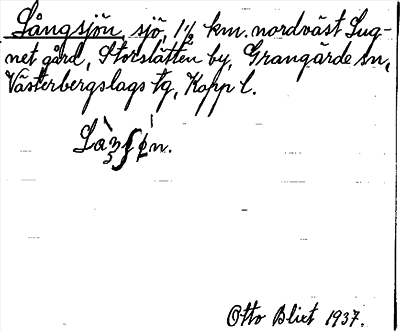 Långsjön, sjö, 1 1/2 km. nordväst Lug-
net gård, Storslätten by, Grangärde sn,
Västerbergslags tg, Kopp l.
Otto Blixt 1937.